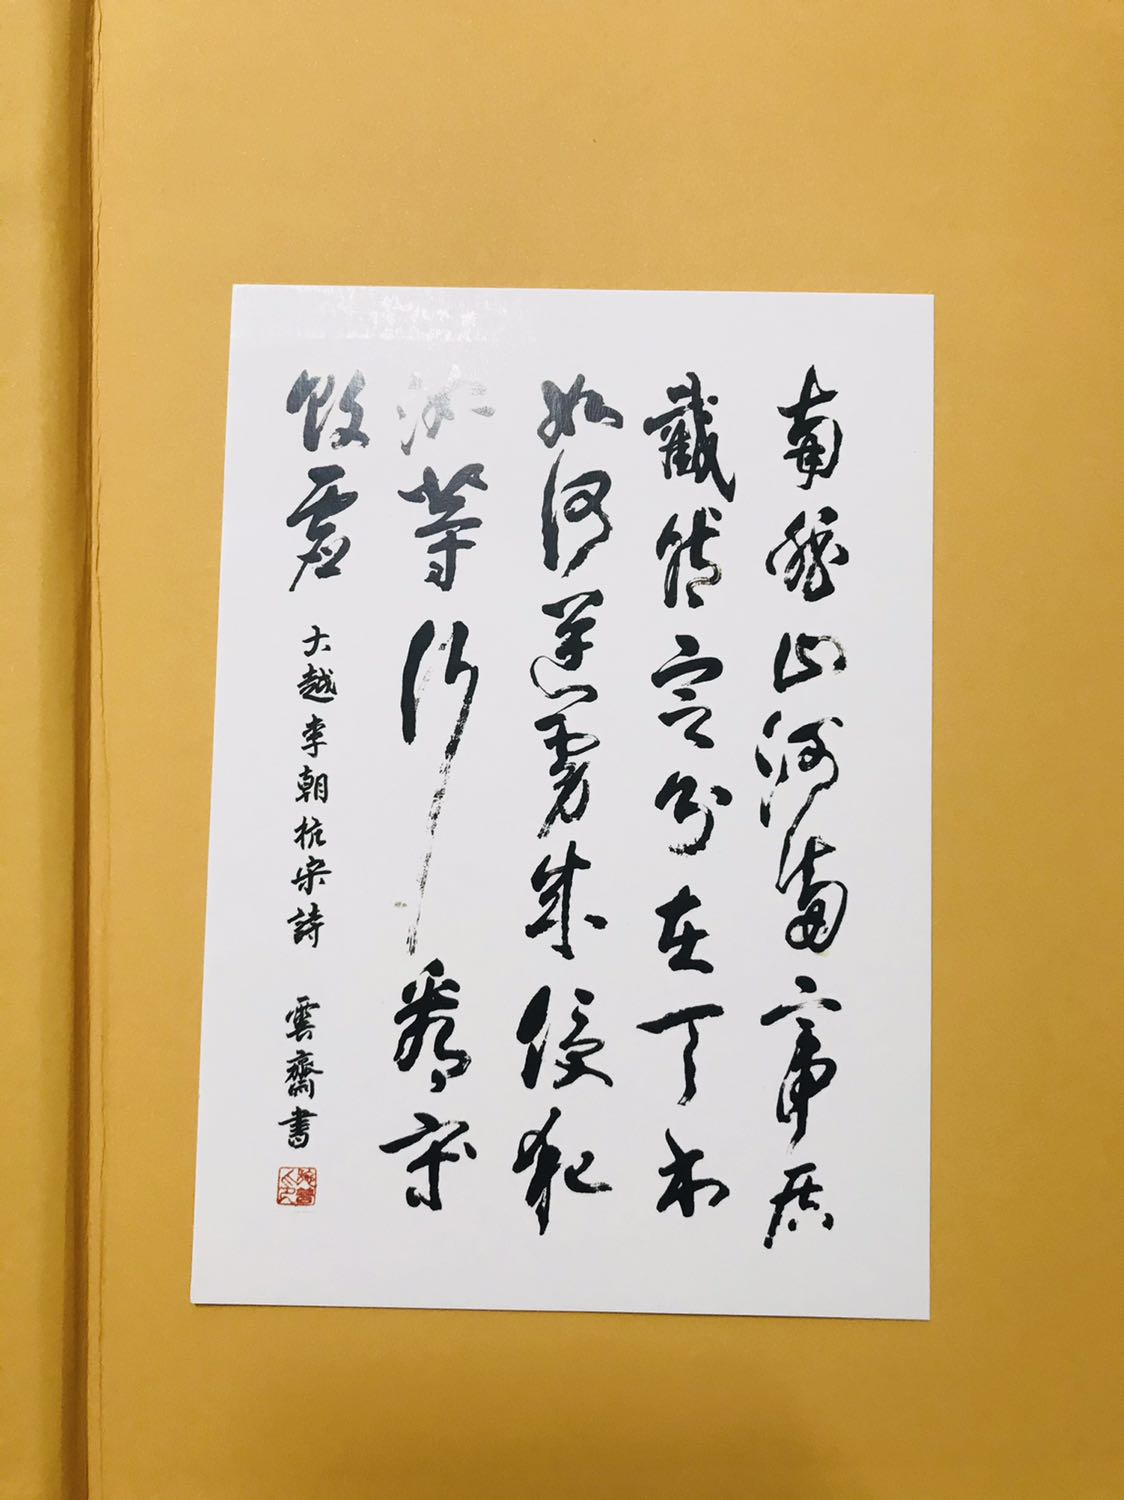 南國山河南帝居
截然定分在天書
如何逆虜來侵犯
汝等行看取
敗虛 大越李朝抗宋詩 雲齋書